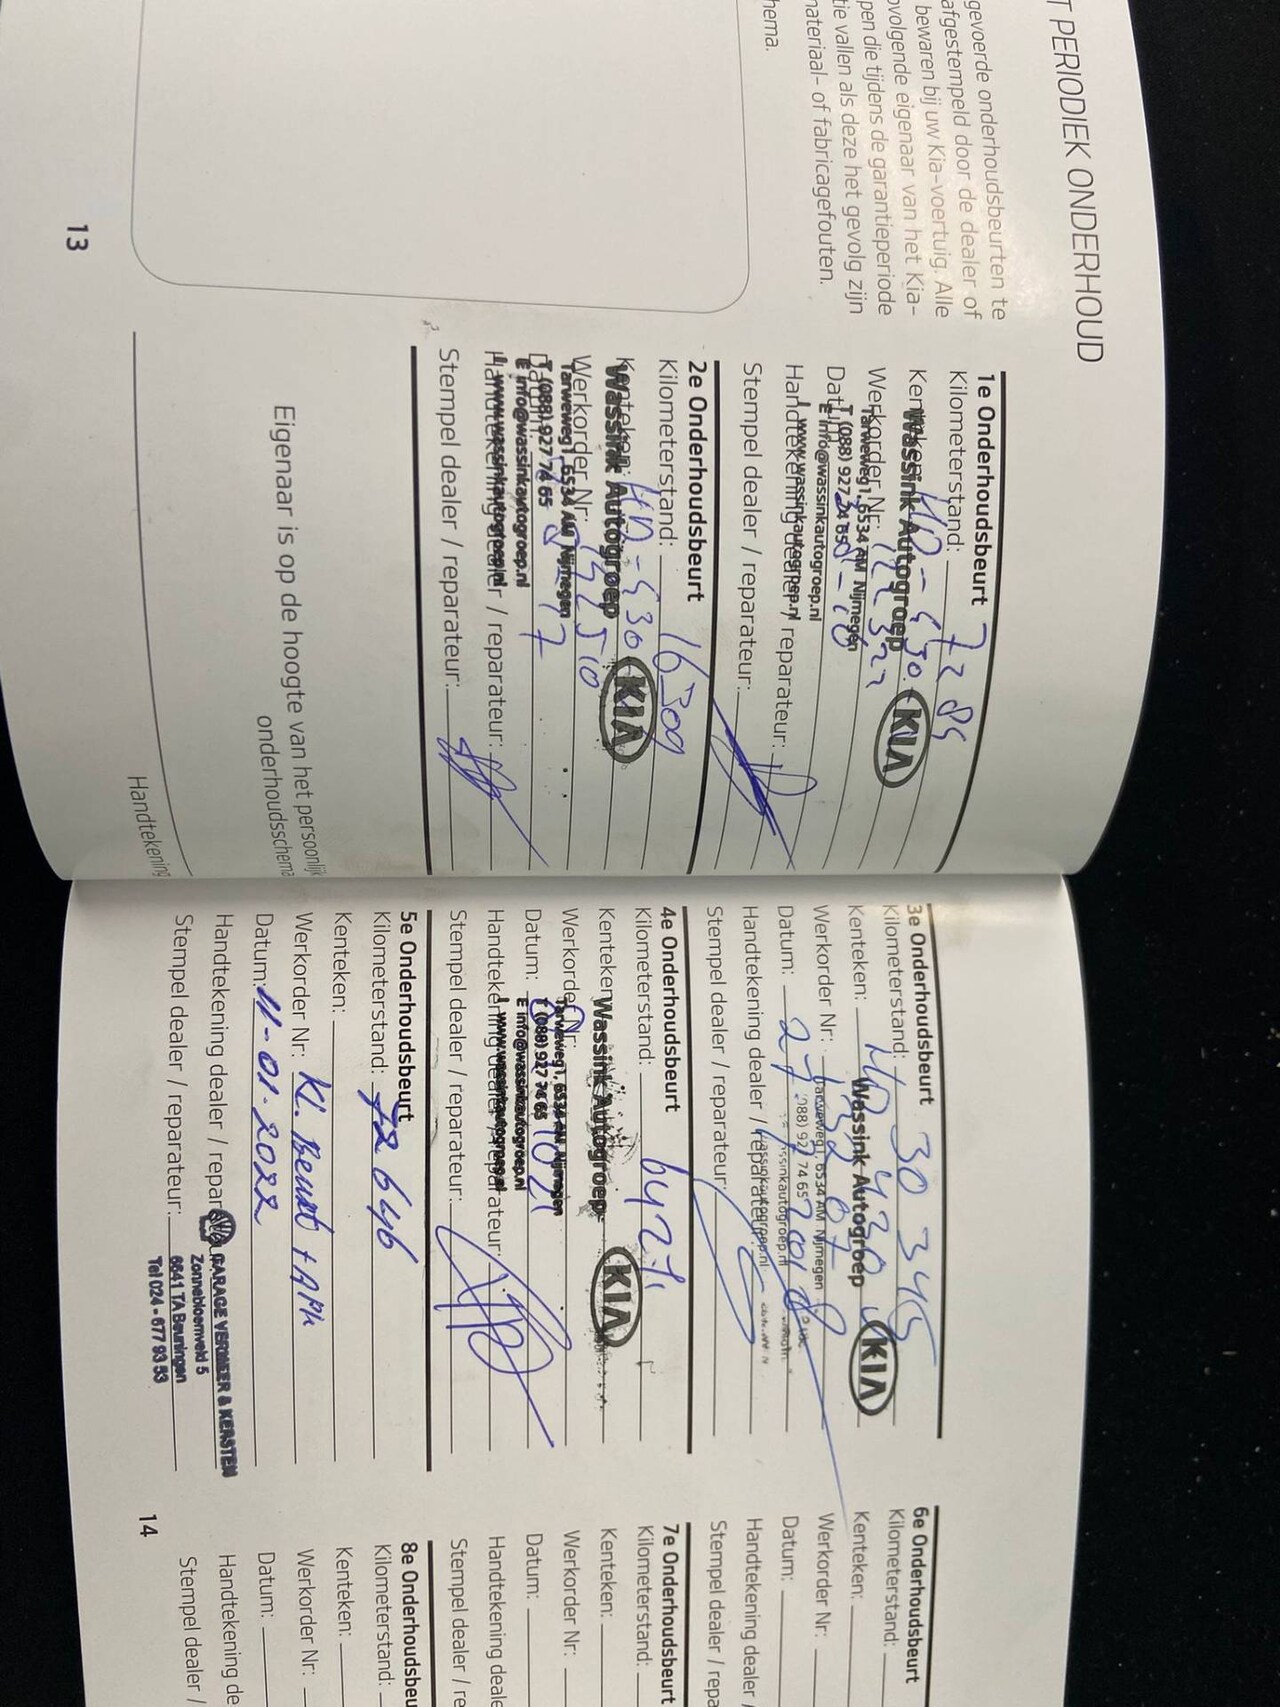 T PERIODIEK ONDERHOUD
gevoerde onderhoudsbeurten te
afgestempeld door de dealer of
bewaren bij uw Kia-voertuig. Alle
volgende eigenaar van het Kia-
pen die tijdens de garantieperiode
tie vallen als deze het gevolg zijn
materiaal- of fabricagefouten.
hema.
13
1e Onderhoudsbeurt
Kilometerstand:
Kenteken:
Wassink Autogroep KIA
Werkorder Nr:
Tarweweg 1, 6534 AM Nijmegen
Datum:
T (088) 927 74 65
E info@wassinkautogroep.nl
I www.wassinkautogroep.nl
Handtekening dealer / reparateur:
Stempel dealer / reparateur:
2e Onderhoudsbeurt
Kilometerstand: 16309
Kenteken:
Wassink Autogroep KIA
Werkorder Nr:
Tarweweg 1, 6534 AM Nijmegen
T (088) 927 74 65
Datum:
E info@wassinkautogroep.nl
I www.wassinkautogroep.nl
Handtekening dealer / reparateur:
Stempel dealer / reparateur:
Eigenaar is op de hoogte van het persoonlijk
onderhoudsschema
Handtekening
3e Onderhoudsbeurt
Kilometerstand: 30 345
Kenteken:
Wassink Autogroep KIA
Werkorder Nr:
Tarweweg 1, 6534 AM Nijmegen
088) 927 74 65
Datum:
Handtekening dealer / reparateur:
Stempel dealer / reparateur:
4e Onderhoudsbeurt
Kilometerstand:
Kenteken:
Wassink Autogroep KIA
Werkorder Nr:
Tarweweg 1, 6534 AM Nijmegen
T (088) 927 74 65
Datum:
E info@wassinkautogroep.nl
I www.wassinkautogroep.nl
Handtekening dealer / reparateur:
Stempel dealer / reparateur:
5e Onderhoudsbeurt
Kilometerstand: 72646
Kenteken:
Werkorder Nr: Kl. Beurt + APK
Datum: 11-01-2022
Handtekening dealer / reparateur:
GARAGE VERMEER & KERSTEN
Zonnebloemveld 5
6641 TA Beuningen
Tel 024 - 677 93 53
Stempel dealer / reparateur:
14
6e Onderhoudsbeurt
Kilometerstand:
Kenteken:
Werkorder Nr:
Datum:
Handtekening dealer /
Stempel dealer / repa
7e Onderhoudsbeurt
Kilometerstand:
Kenteken:
Werkorder Nr:
Datum:
Handtekening deale
Stempel dealer / re
8e Onderhoudsbeu
Kilometerstand:
Kenteken:
Werkorder Nr:
Datum:
Handtekening de
Stempel dealer /